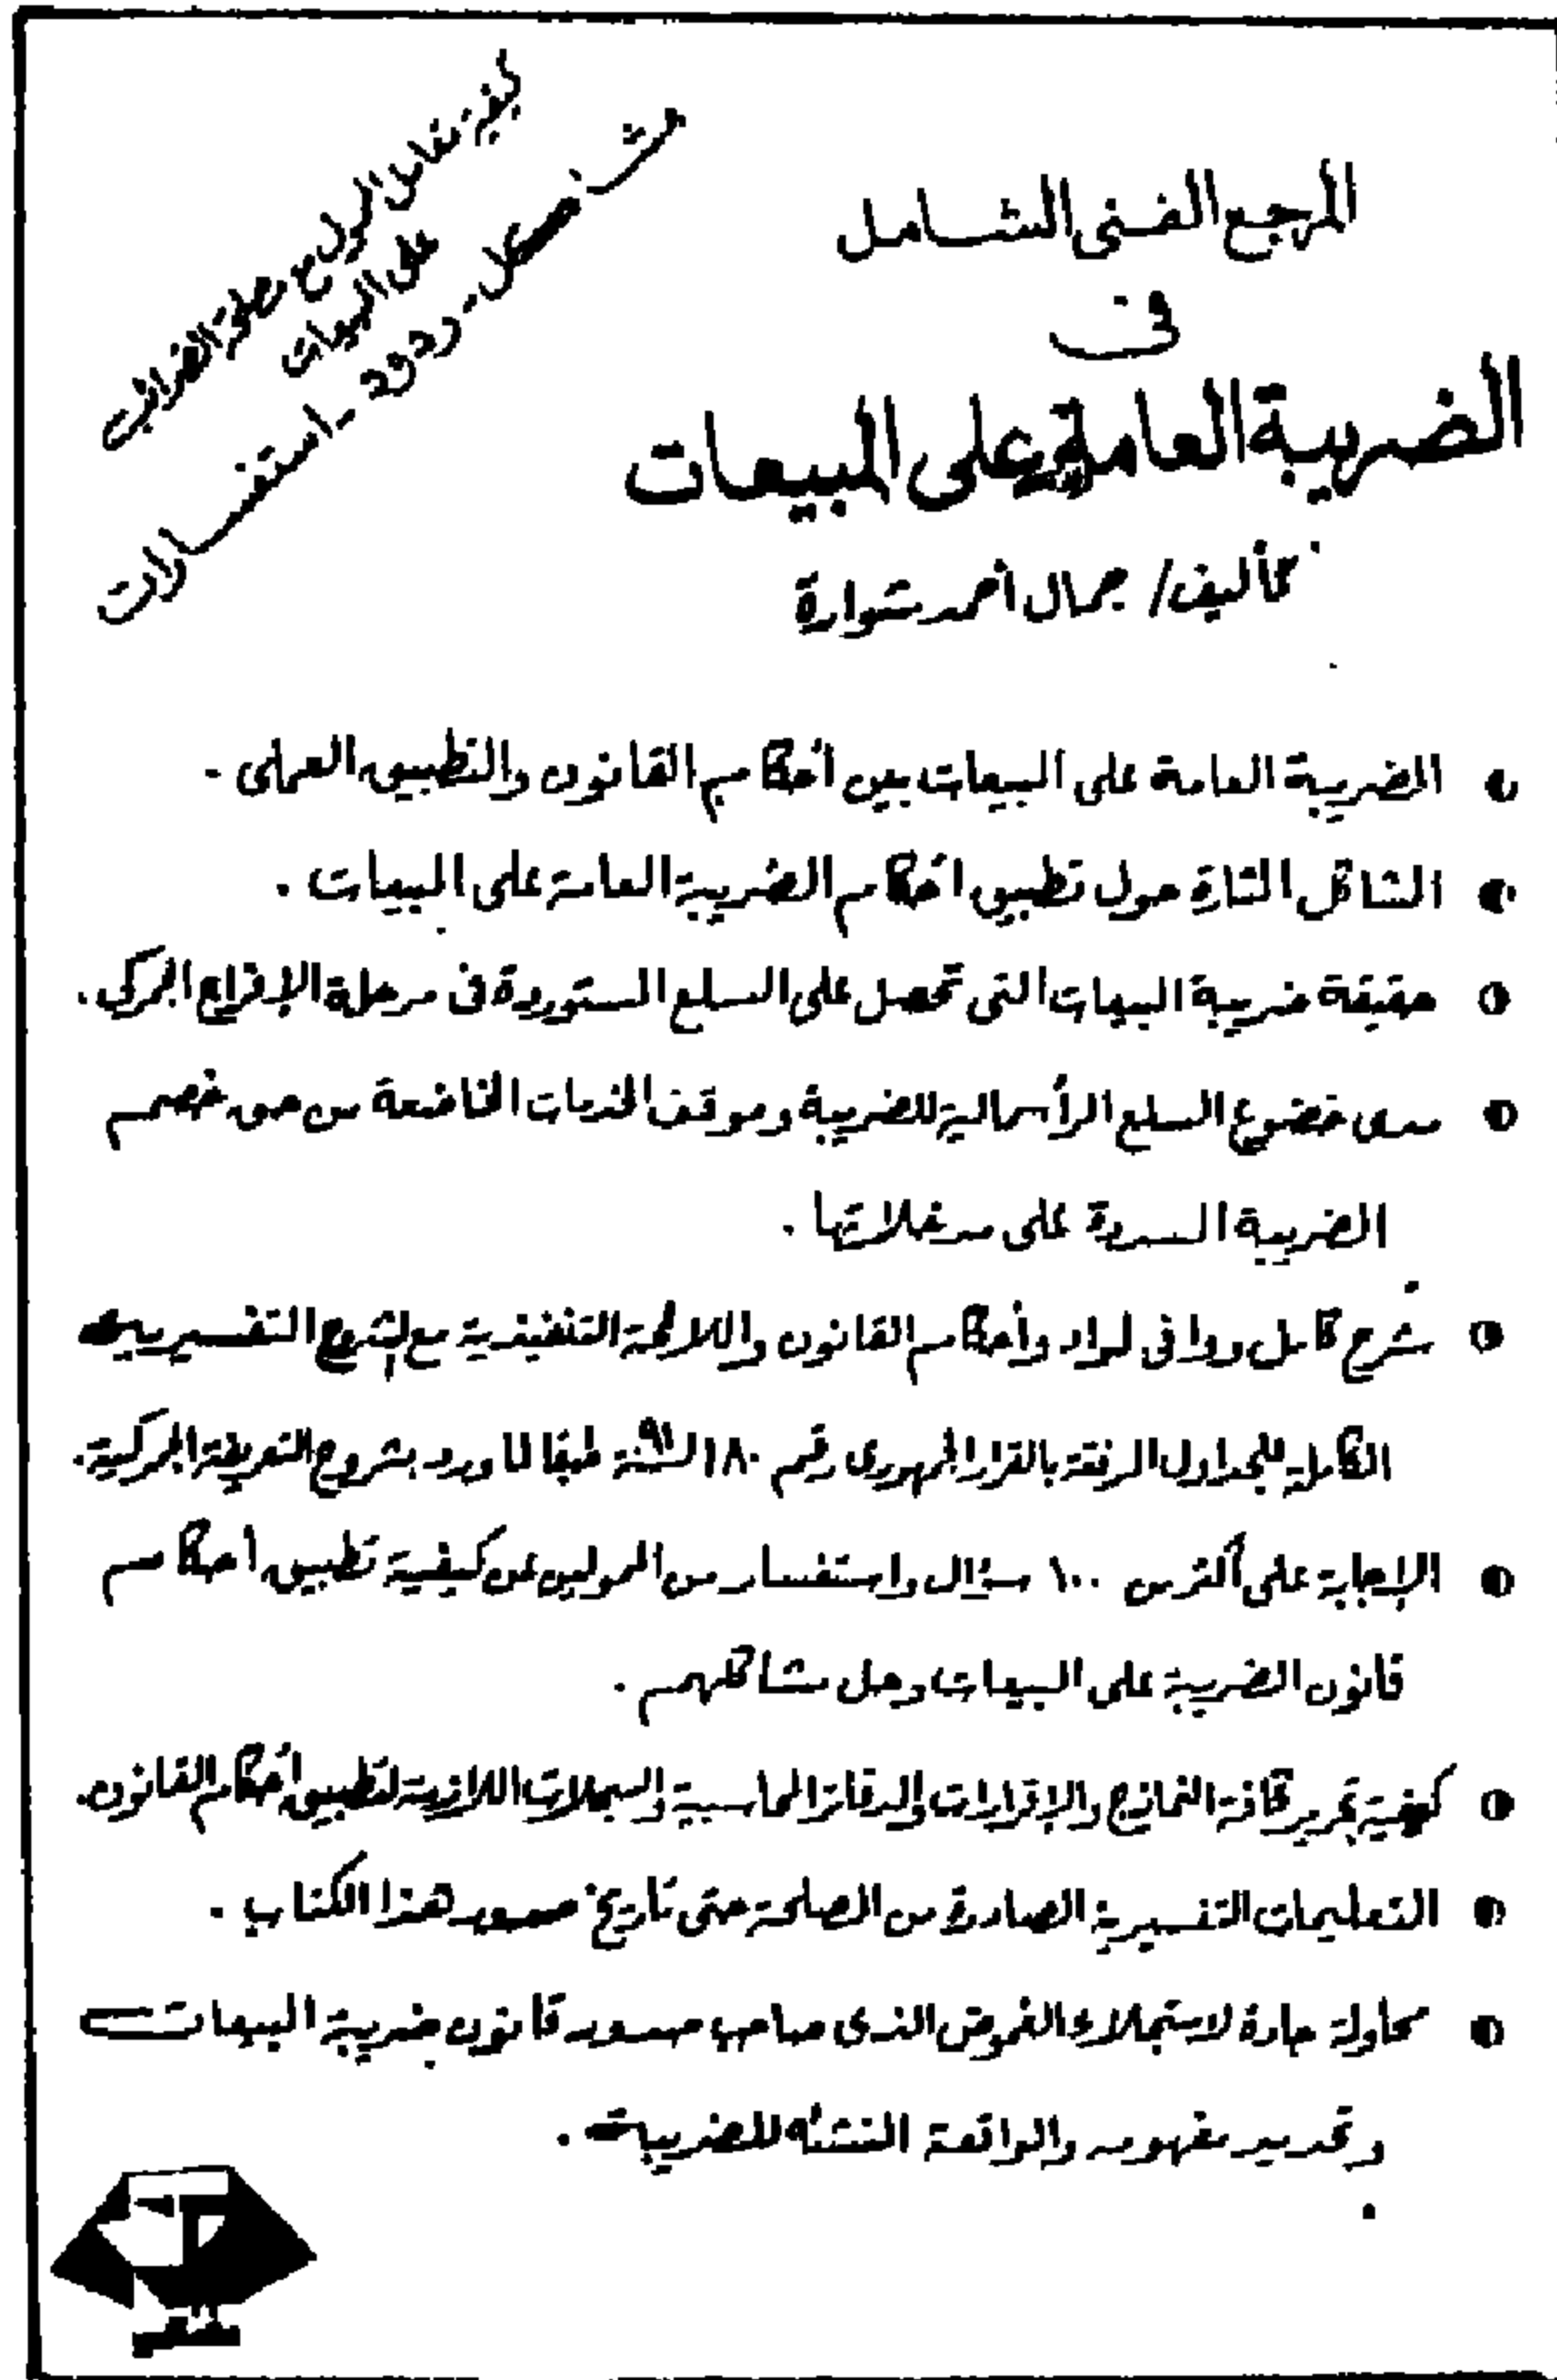 المرجع الفنى الشامل
فى
الضريبة العامة على المبيعات
تأليف / جمال أحمد شوارة
كيفية تعامل الممول مع مصلحة الضرائب
على المبيعات
مشـاكل - ردود - استفسارات
• الضريبة العامة على المبيعات بين أحكام القانون والتطبيق العملى .
• المشاكل المثارة حول تطبيق أحكام الضريبة العامة على المبيعات .
• حقيقة ضريبة المبيعات التى تحصل على السلع المستوردة فى مرحلة الإفراج الجمركى .
• مدى خضوع السلع الرأسمالية للضريبة وموقف الخدمات الخاضعة من حق خصم
الضريبة المسددة على مدخلاتها .
• شرح كامل ووافى لمواد وأحكام القانون واللائحة التنفيذية مع الشروح التفسيرية
الكاملة للجداول المرفقة بالقرار الجمهورى رقم ١٨٠ لسنة ٩١ طبقا لما ورد بشروح التعريفة الجمركية .
• الإجابة على أكثر من ١٠٠ سؤال واستفسار من الممولين عن كيفية تطبيق أحكام
قانون الضريبة على المبيعات وحل مشاكلهم .
• كيفية تحرير كافة النماذج والإقرارات والدفاتر المحاسبية والسجلات اللازمة لتطبيق أحكام القانون .
• التعليمات التفسيرية الصادرة من المصلحة حتى تاريخ صدور هذا الكتاب .
• محاولة جادة لاستجلاء الغموض الذى صاحب صدور قانون ضريبة المبيعات
وتحديد مفهومه والواقعة المنشئة للضريبة .